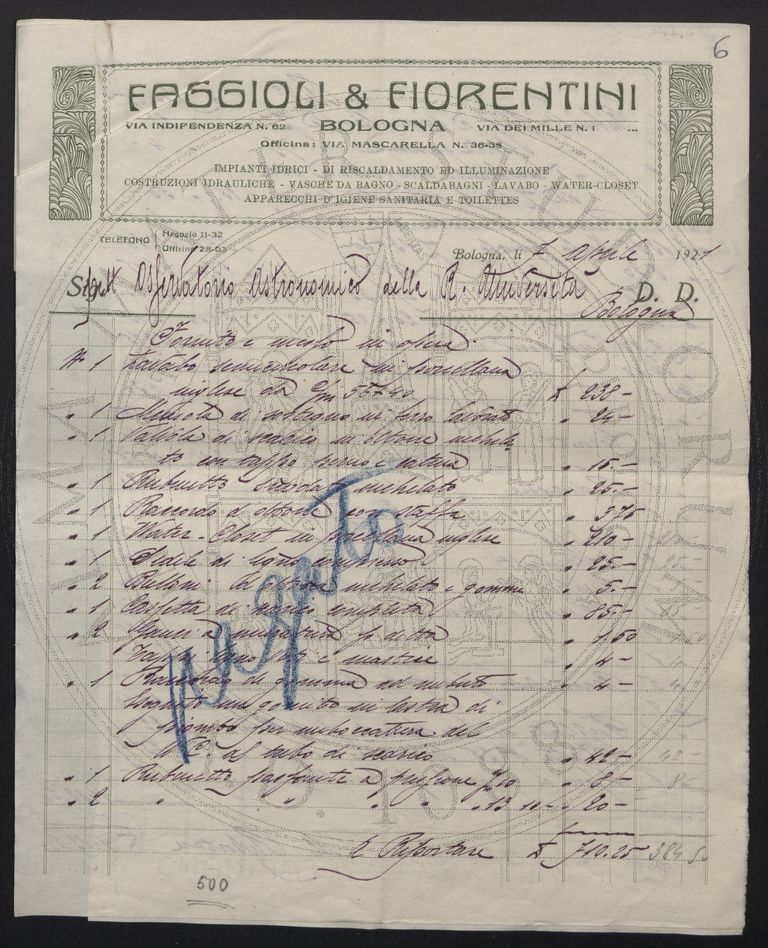 6
FAGGIOLI & FIORENTINI
VIA INDIPENDENZA N. 62 BOLOGNA VIA DEI MILLE N. 1 ...
Officina: VIA MASCARELLA N. 36-38
IMPIANTI IDRICI - DI RISCALDAMENTO ED ILLUMINAZIONE
COSTRUZIONI IDRAULICHE - VASCHE DA BAGNO - SCALDABAGNI - LAVABO - WATER-CLOSET
APPARECCHI D'IGIENE SANITARIA E TOILETTES
TELEFONO Negozio 11-32
Officina 28-03
Bologna, li 7 aprile 1921
Spett Osservatorio Astronomico della R. Università D. D.
Bologna
Fornito e messo in opera
N° 1 Lavabo semicircolare in porcellana
inglese da c/m 55x40 £ 238-
" 1 Mensola di sostegno in ferro lavorato " 24-
" 1 di scarico in ottone
to con tappo e catena " 15.-
" 1 Rubinetto nichelato " 25.-
" 1 Raccordo d'ottone con staffa " 375
" 1 Water-Closet in porcellana inglese " 210-
" 1 Sedile di legno " 25-
" 2 nichelati e gomma " 5.-
" 1 Cassetta di scarico completa " 85-
" 2 Ganci a muratura p. detta " 1,50
e mastice " 4-
" 1 Raccordo di gomma ed " 4-
un gomito in lastra di
piombo per imboccatura del
W.C. al tubo di scarico " 42-
" 1 Rubinetto passante a 8-
" 2 " " " " 13 10- " 20-
A Riportare £ 710.25
pagato
500